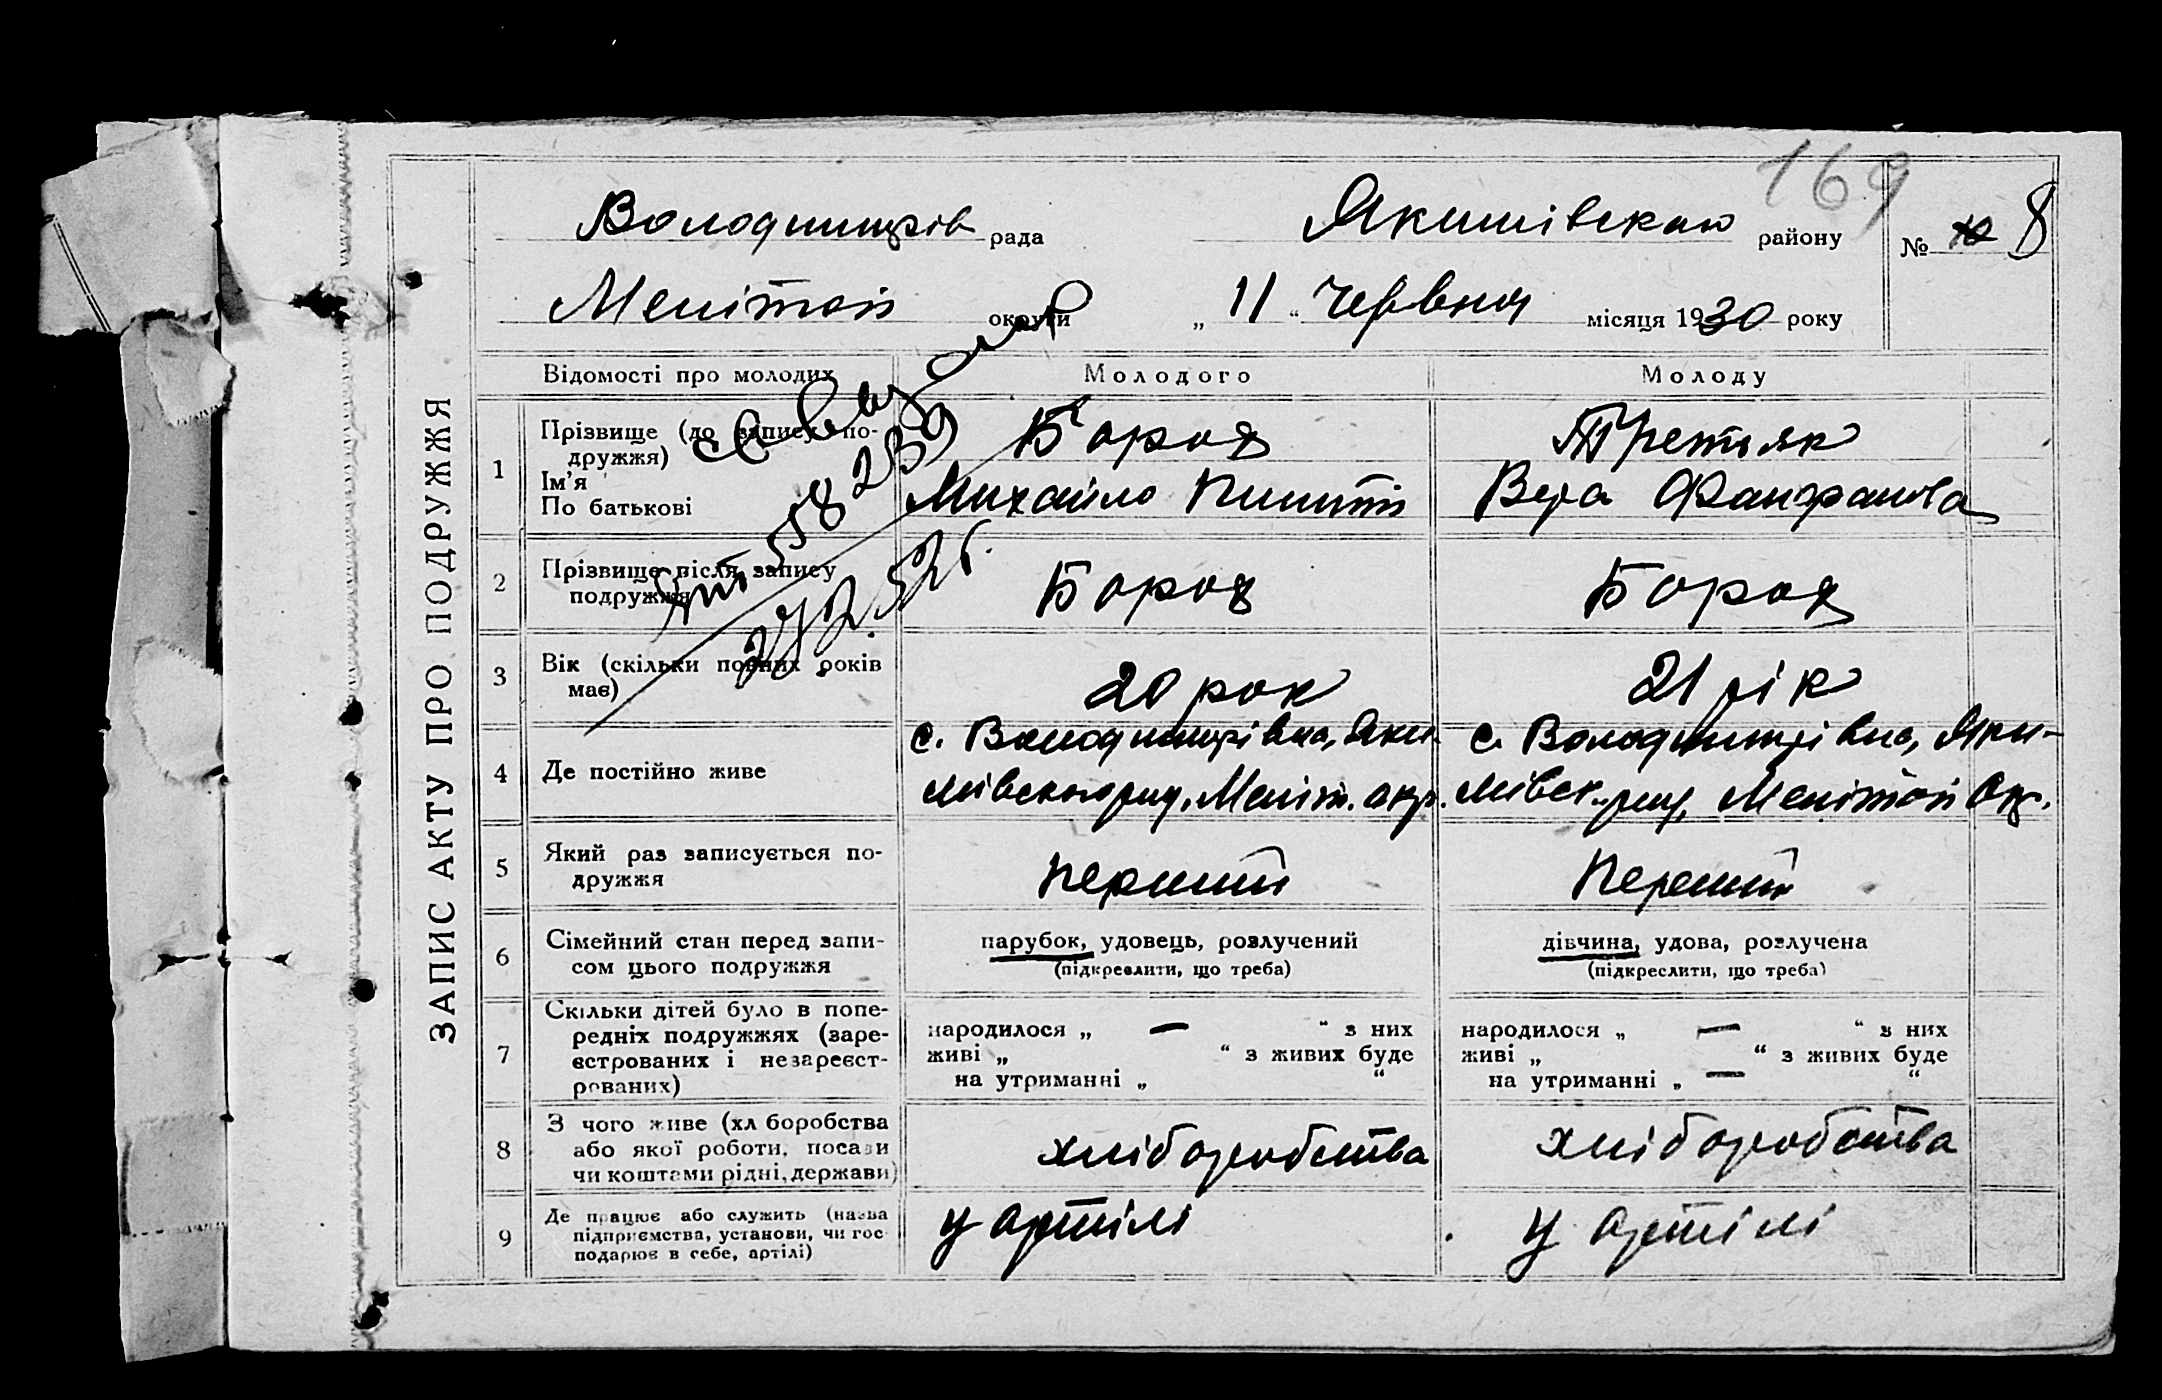 169
Володимирів рада Якимівського району № 8
Мелітоп округи „ 11 “ червня місяця 1930 року
ЗАПИС АКТУ ПРО ПОДРУЖЖЯ
Відомості про молодих Молодого Молоду
1 Прізвище (до запису по-
дружжя)
Ім'я
По батькові
Третьяк
Михайло
Вера
2 Прізвище після запису
подружжя
3 Вік (скільки повних років
має)
20 рок
21 рік
4 Де постійно живе
с. Володимирівка, Яки-
мівського рай, Меліт. окр.
с. Володимирівка, Яки-
мівськ. рай, Мелітоп окр.
5 Який раз записується по-
дружжя
перший
Перший
6 Сімейний стан перед запи-
сом цього подружжя
парубок, удовець, розлучений
(підкреслити, що треба)
дівчина, удова, розлучена
(підкреслити, що треба)
7 Скільки дітей було в попе-
редніх подружжях (заре-
єстрованих і незареєст-
рованих)
народилося „ — “ з них
живі „ “ з живих буде
на утриманні „ “
народилося „ — “ з них
живі „ “ з живих буде
на утриманні „ — “
8 З чого живе (хліборобства
або якої роботи, посади
чи коштами рідні, держави)
хліборобства
хліборобства
9 Де працює або служить (назва
підприємства, установи, чи гос
подарює в себе, артілі)
у артілі
у артілі